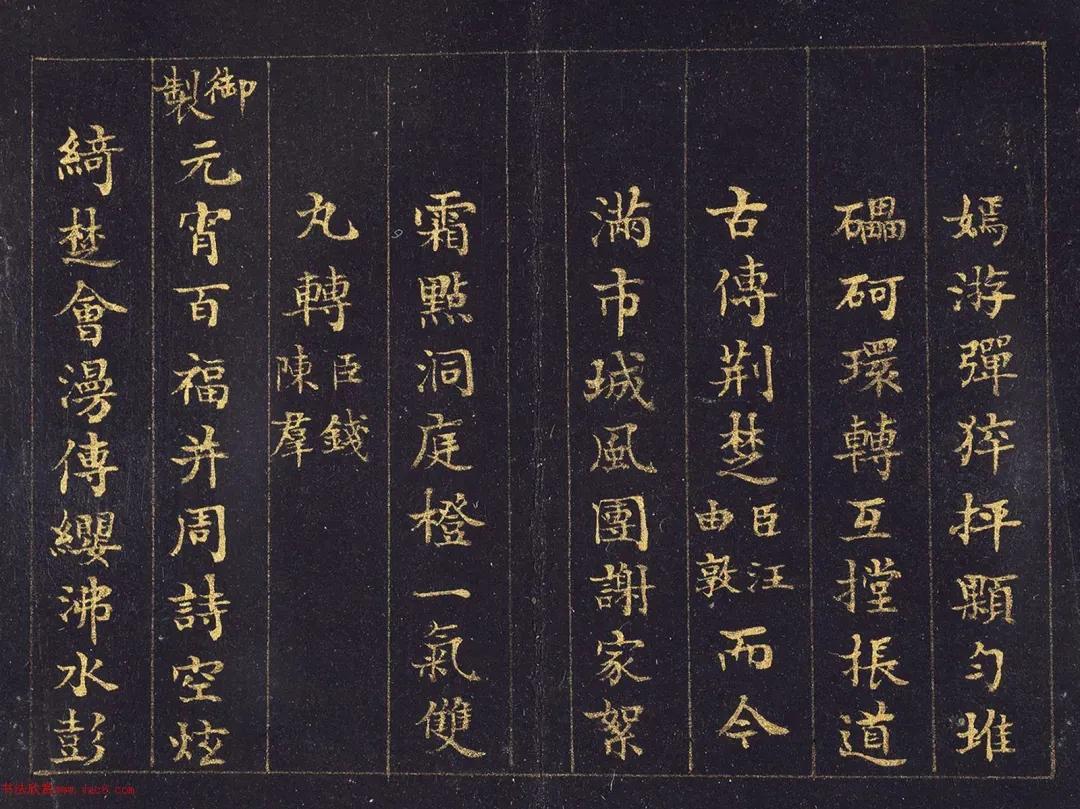 嫣游彈猝抨顆勻堆
礧砢環轉互摚掁道
古傳荆楚臣汪由敦而今
滿市城風團謝家絮
霜點洞庭橙一氣雙
丸轉臣錢陳羣
御製元宵百福并周詩空炫
綺楚會漫傳纓沸水彭
书法欣赏www.yac8.com